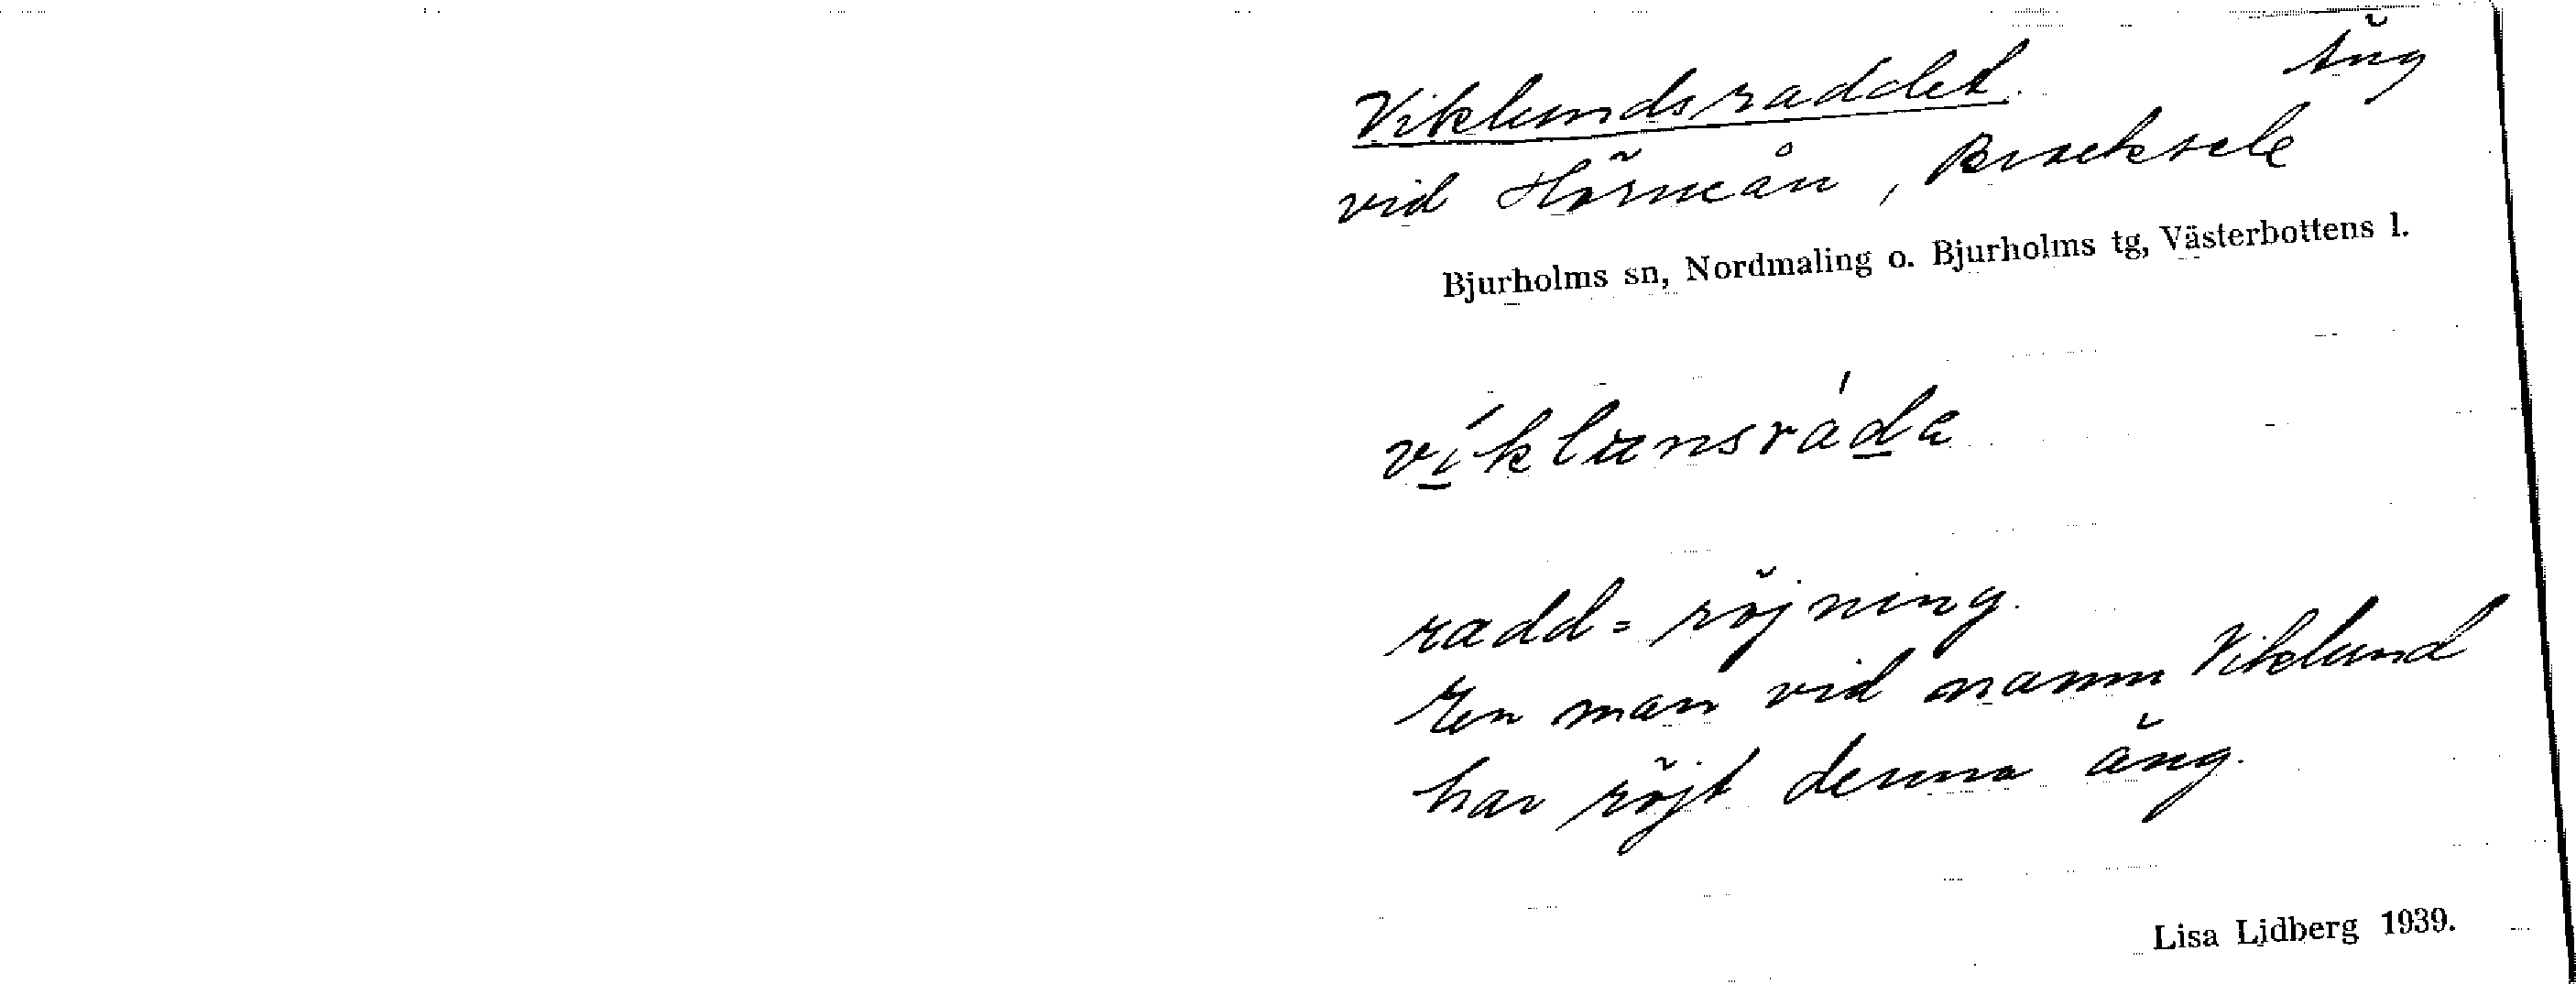 Viklundsraddet. Äng
vid Hörneån, Bracksele
Bjurholms sn, Nordmaling o. Bjurholms tg, Västerbottens l.
víklunsráda
radd = röjning.
En man vid namn Viklund
har röjt denna äng.
Lisa Lidberg 1939.